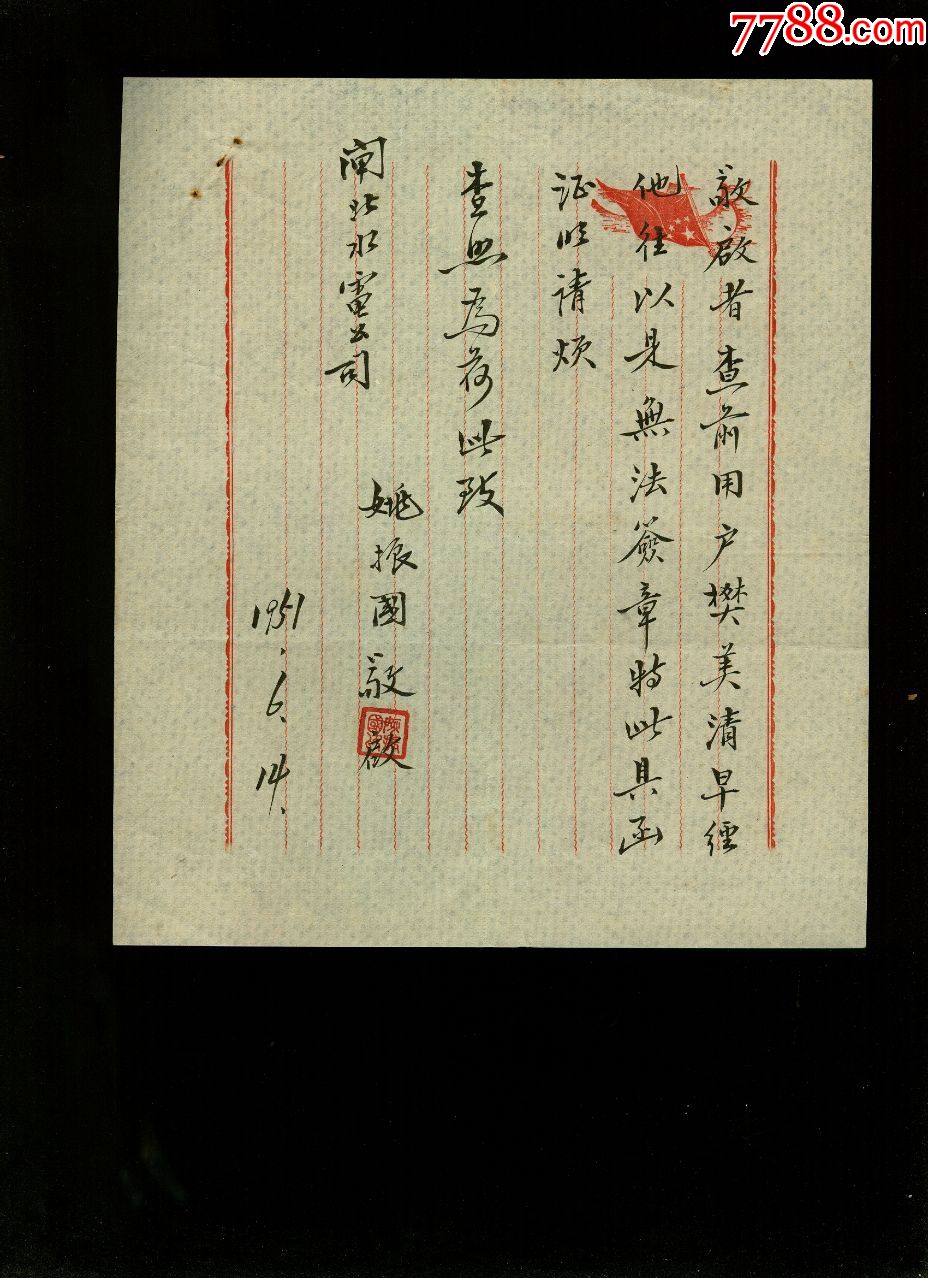 7788.com
敬啟者查前用户樊美清早經
他往以是無法簽章特此具函
证明请烦
查照為荷此致
闸北水電公司
姚振國敬啟
1951.6.14.